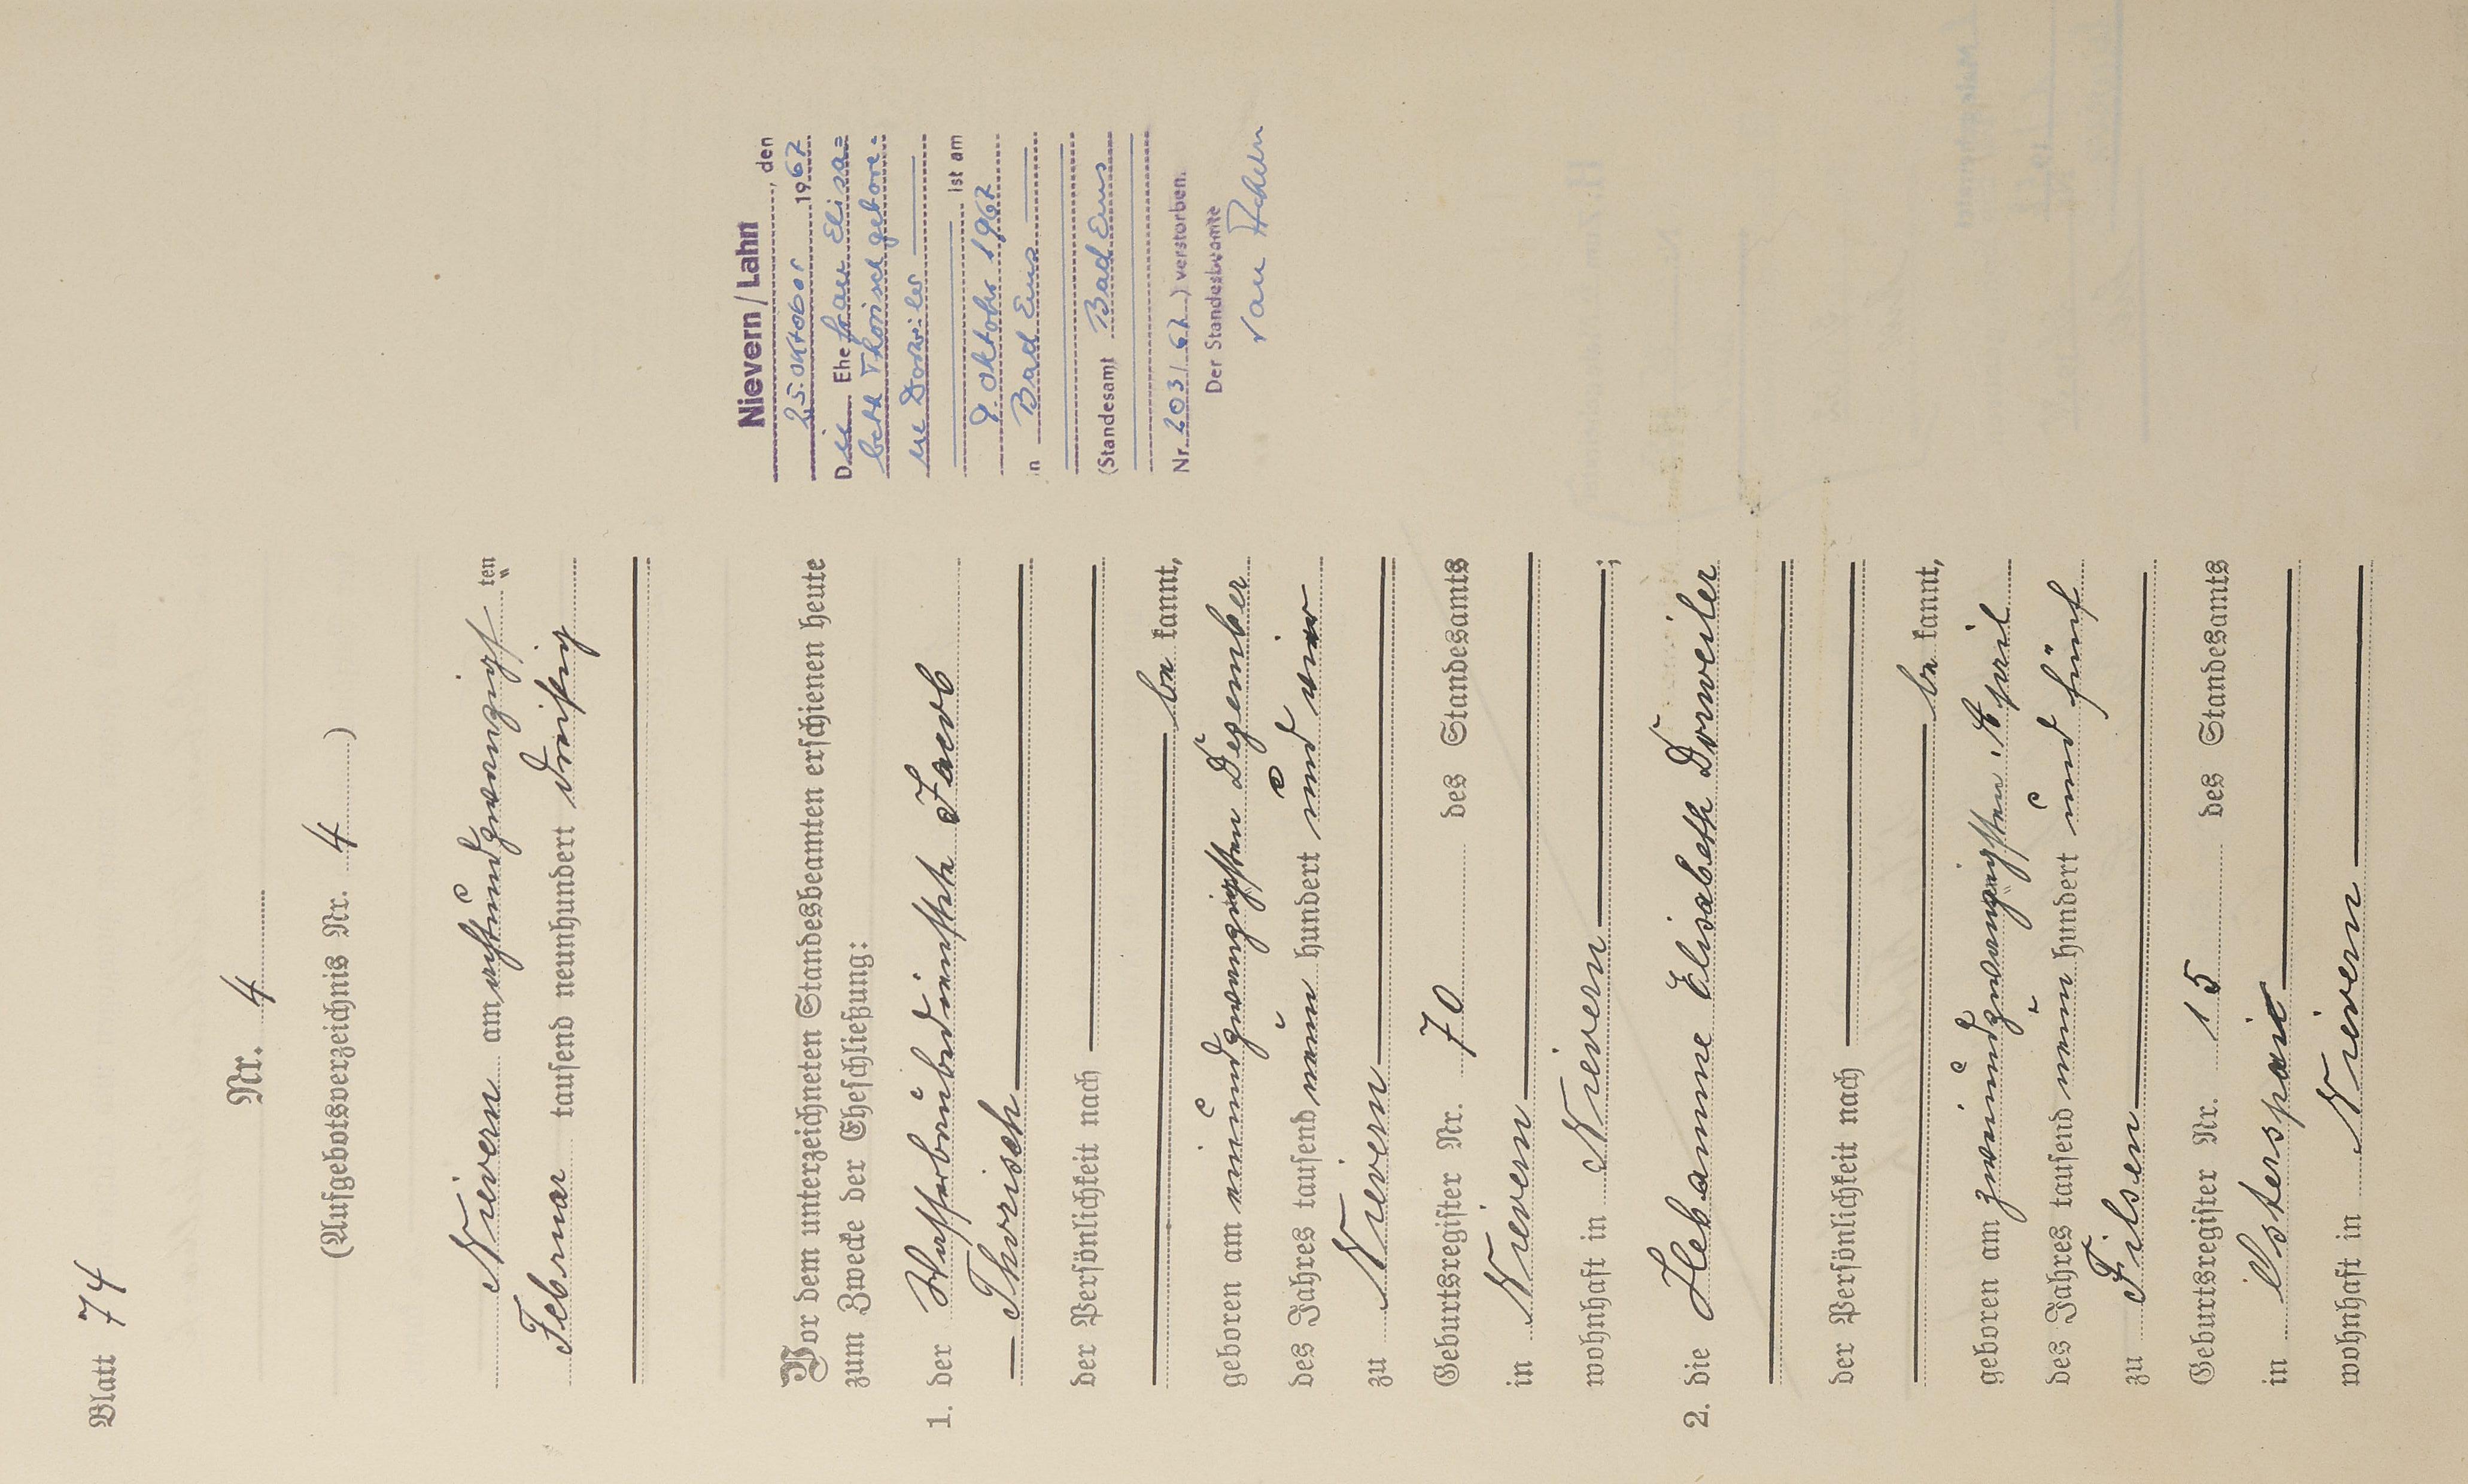 Blatt 74
Nr. 4
(Aufgebotsverzeichnis Nr. 4 )
Nievern am achtundzwanzigsten
Februar tausend neunhundert dreißig
Vor dem unterzeichneten Standesbeamten erschienen heute
zum Zwecke der Eheschließung:
1. der Wasserbaubedienstete Jacob
Thorisch
der Persönlichkeit nach
be kannt,
geboren am einundzwanzigsten Dezember
des Jahres tausend neun hundert und vier
zu Nievern
Geburtsregister Nr. 70 des Standesamts
in Nievern
wohnhaft in Nievern ;
2. die Hebamme Elisabeth Dorweiler
der Persönlichkeit nach
be kannt,
geboren am zweiundzwanzigsten April
des Jahres tausend neun hundert und fünf
zu Filsen
Geburtsregister Nr. 15 des Standesamts
in Osterspai
wohnhaft in Nievern
Nievern / Lahn
, den
25. Oktober 1967
Die Ehefrau Elisa=
beth Thorisch gebore=
ne Dorweiler
ist am
9. Oktober 1967
in Bad Ems
(Standesamt Bad Ems
Nr. 203/67) verstorben.
Der Standesbeamte